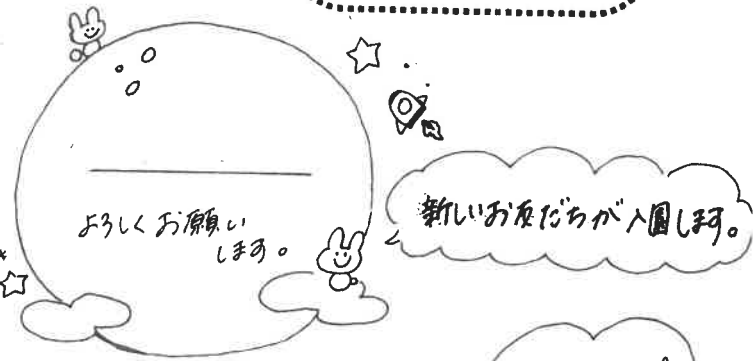 よろしくお願い
します。
新しいお友だちが入園します。